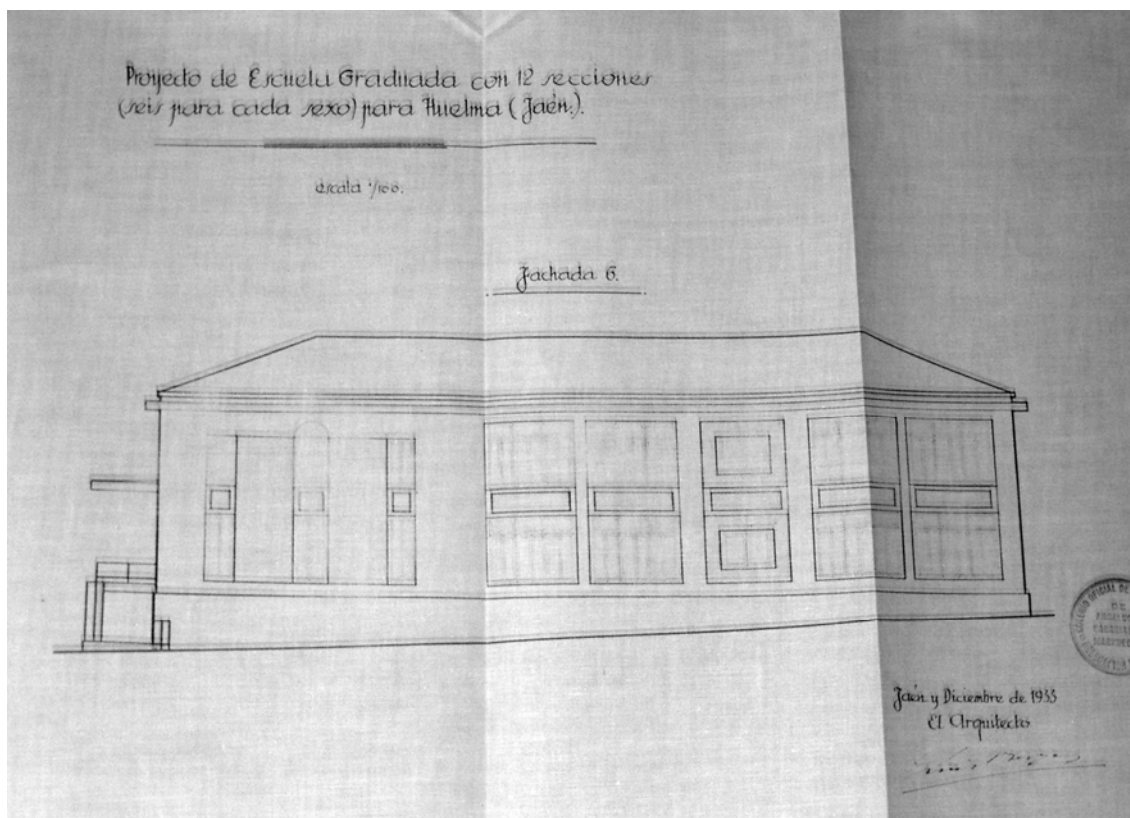 Proyecto de Escuela Graduada con 12 secciones
(seis para cada sexo) para Huelma (Jaén.).
escala 1/100.
Fachada 6.
OFICIAL DE
Jaén y Diciembre de 1933
El Arquitecto